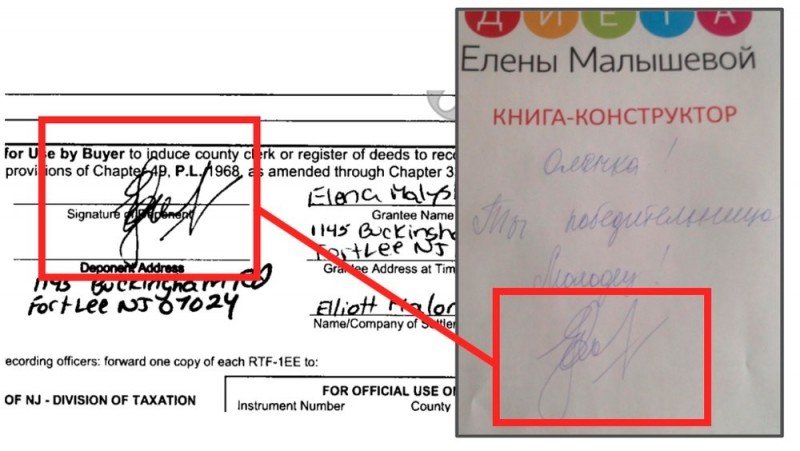 for Use by Buyer to induce county clerk or register of deeds to reco
provisions of Chapter 49, P.L. 1968, as amended through Chapter 3
Signature of Deponent
Deponent Address
1145 Buckingham RD
Fort Lee NJ 07024
Elena Malys
Grantee Name
1145 Bucking
Fort Lee NJ
Grantee Address at Tim
Elliott Malo
Name/Company of Settle
ecording officers: forward one copy of each RTF-1EE to:
OF NJ - DIVISION OF TAXATION
FOR OFFICIAL USE O
Instrument Number County
ДИЕТА
Елены Малышевой
КНИГА-КОНСТРУКТОР
Оленка!
Ты победительница
Молодец!